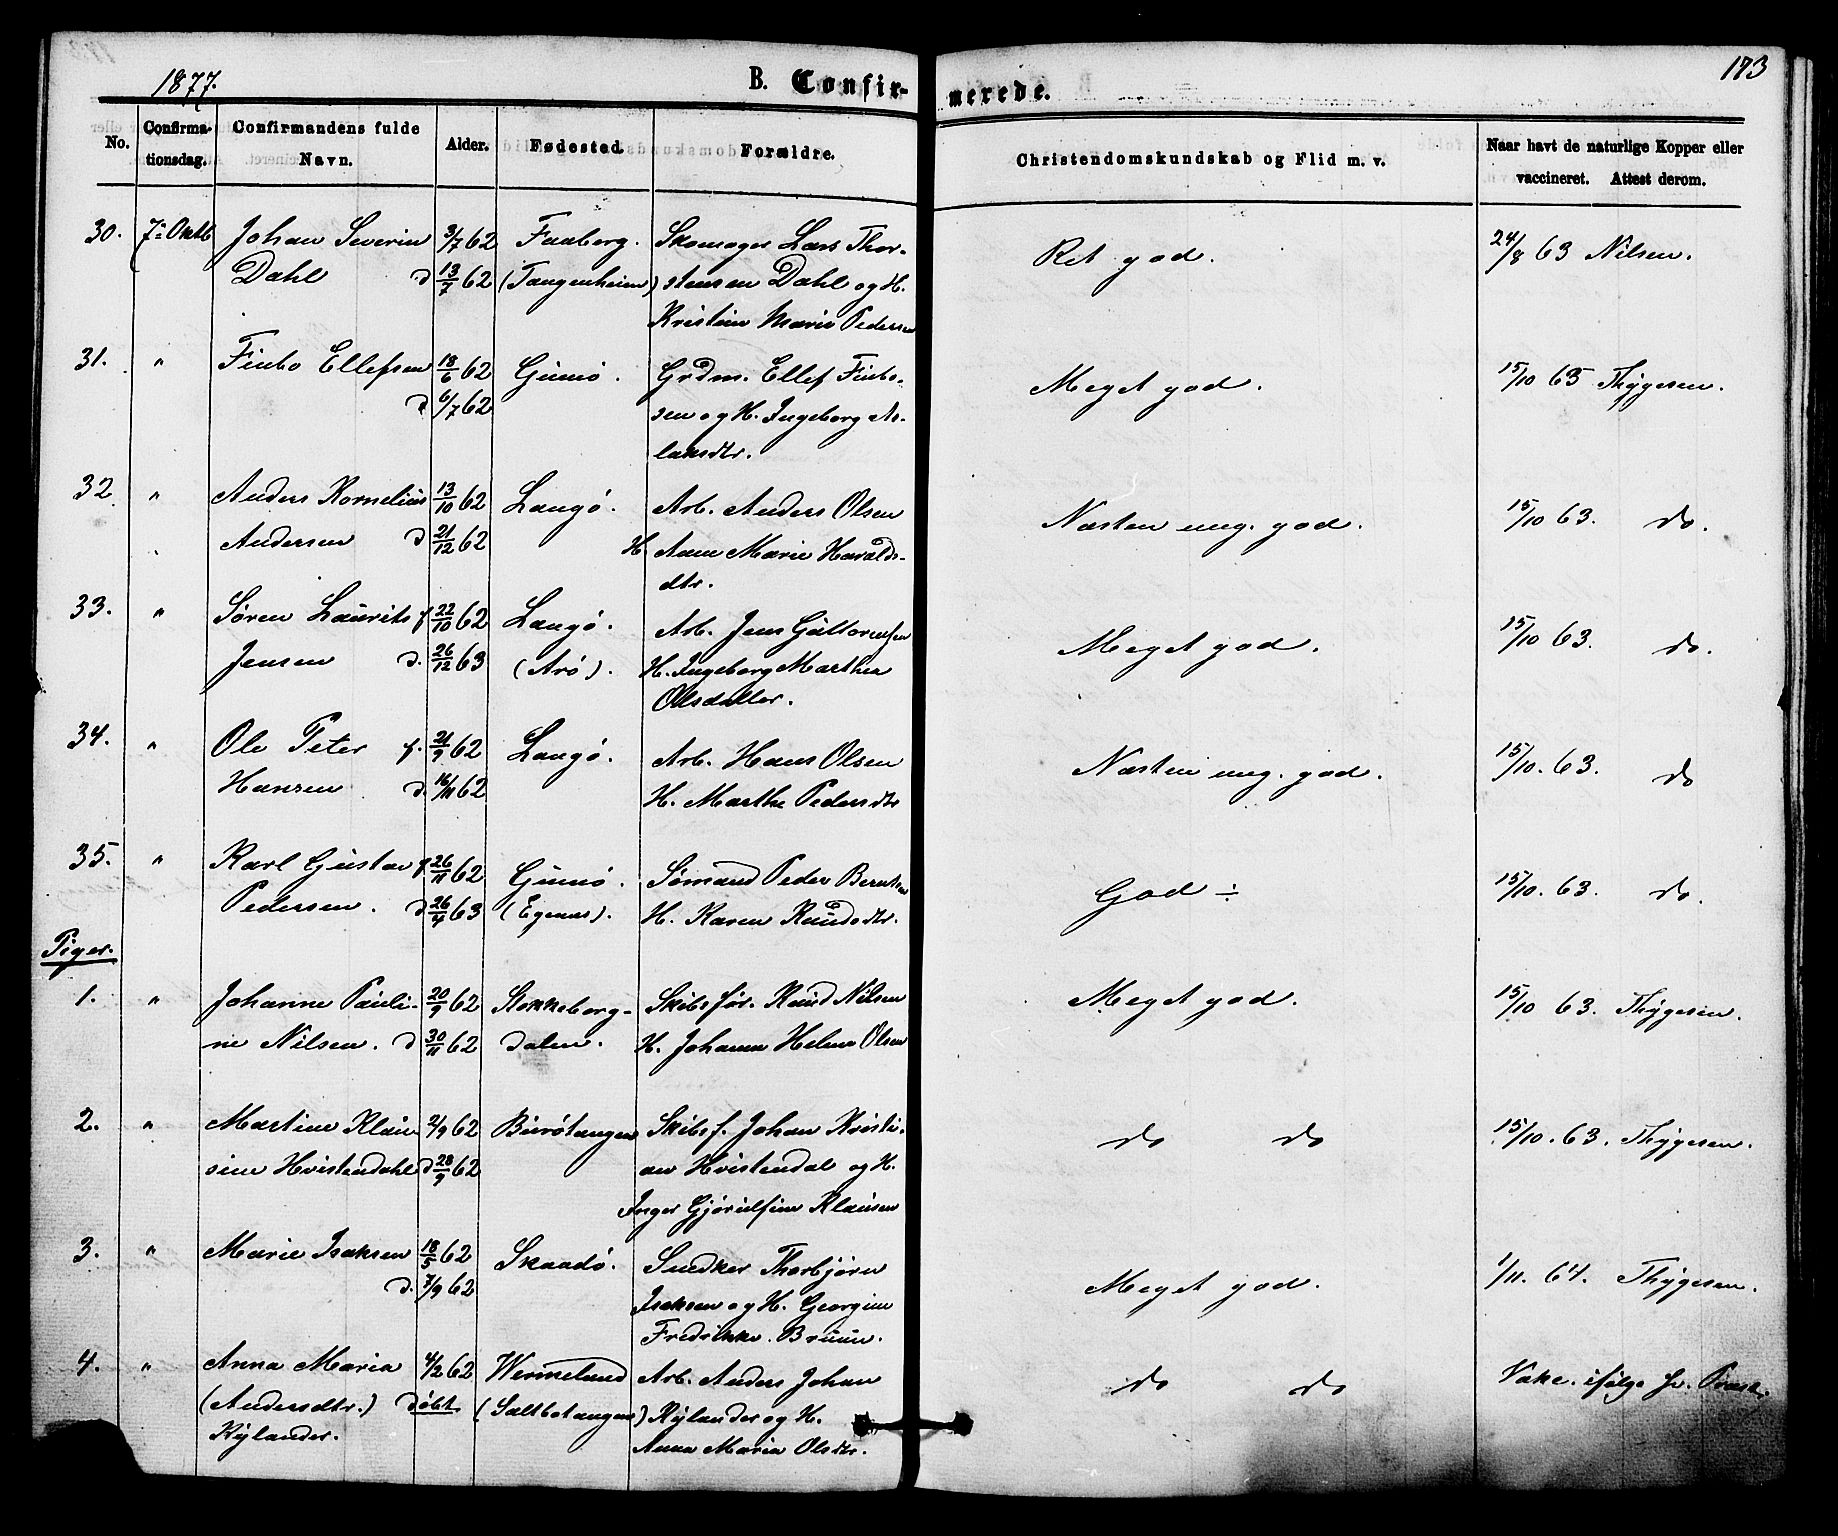 1877.
B. Confir-
merede.
173
No.
Confirma-
tionsdag.
Confirmandens fulde
Navn.
Alder.
Fødested.
Forældre.
Christendomskundskab og Flid m. v.
Naar havt de naturlige Kopper eller
vaccineret. Attest derom.
30. 7de Oktb Johan Severin 3/7 62 Faaberg. Skomager Lars Thor- Ret god. 24/8 63 Nilsen.
Dahl d 13/7 62 (Tangenheim) stensen Dahl og H.
Kristine Marie Pedersen
31. " Finbo Ellefsen 18/6 62 Gumø. Grdm. Ellef Finbo- Meget god. 15/10 63 Thygesen.
d 6/7 62 sen og H. Ingeborg As-
laksdtr.
32 " Anders Kornelius 13/10 62 Langø. Arb. Anders Olsen Næsten meg. god. 15/10 63. do.
" Andersen d 21/12 62 H. Anne Marie Haralds-
dtr.
33. " Søren Laurits f 22/10 62 Langø. Arb. Jens Guttormsen Meget god. 15/10 63. do.
Jensen d. 26/12 63 (Arø). H. Ingeborg Marthea
Olsdatter.
34. " Ole Peter f. 21/9 62 Langø. Arb. Hans Olsen Næsten meg. god. 15/10. 63. do
Hansen d. 16/11 62 H. Marthe Pedersdtr
35. " Karl Gustav f 26/11 62 Gumø. Sømand Peder Berntsen God ÷ 15/10. 63. do.
Pedersen. d 26/4 63 (Egenes). H. Karen Knudsdtr.
Piger.
1. " Johanne Pauli- 20/9 62 Stokkeborg- Skibsfør. Knud Nilsen Meget god. 15/10 63. Thygesen.
ne Nilsen. d 30/11 62 dalen. H. Johanne Helene Olsen
2. " Martine Klau- 2/9 62 Buerøtangen Skibsf. Johan Kristi- do do 15/10. 63. Thygesen.
sine Hvistendahl d 28/9 62 an Hvistendal og H.
Inger Gjørulfine Klausen
3. " Marie Isaksen 18/5 62 Skaadø. Snedker Thorbjørn Meget god. 1/11. 64. Thygesen.
d. 7/9 62 Isaksen og H. Georgine
Fredrikke Bruun.
4. " Anna Maria 4/2 62 Wermeland Arb. Anders Johan do do Vakc. ifølge sv. Præst.
(Andersdtr.) døbt (Saltbotangen) Rylander og H.
Rylander. Anna Maria Olsdtr.